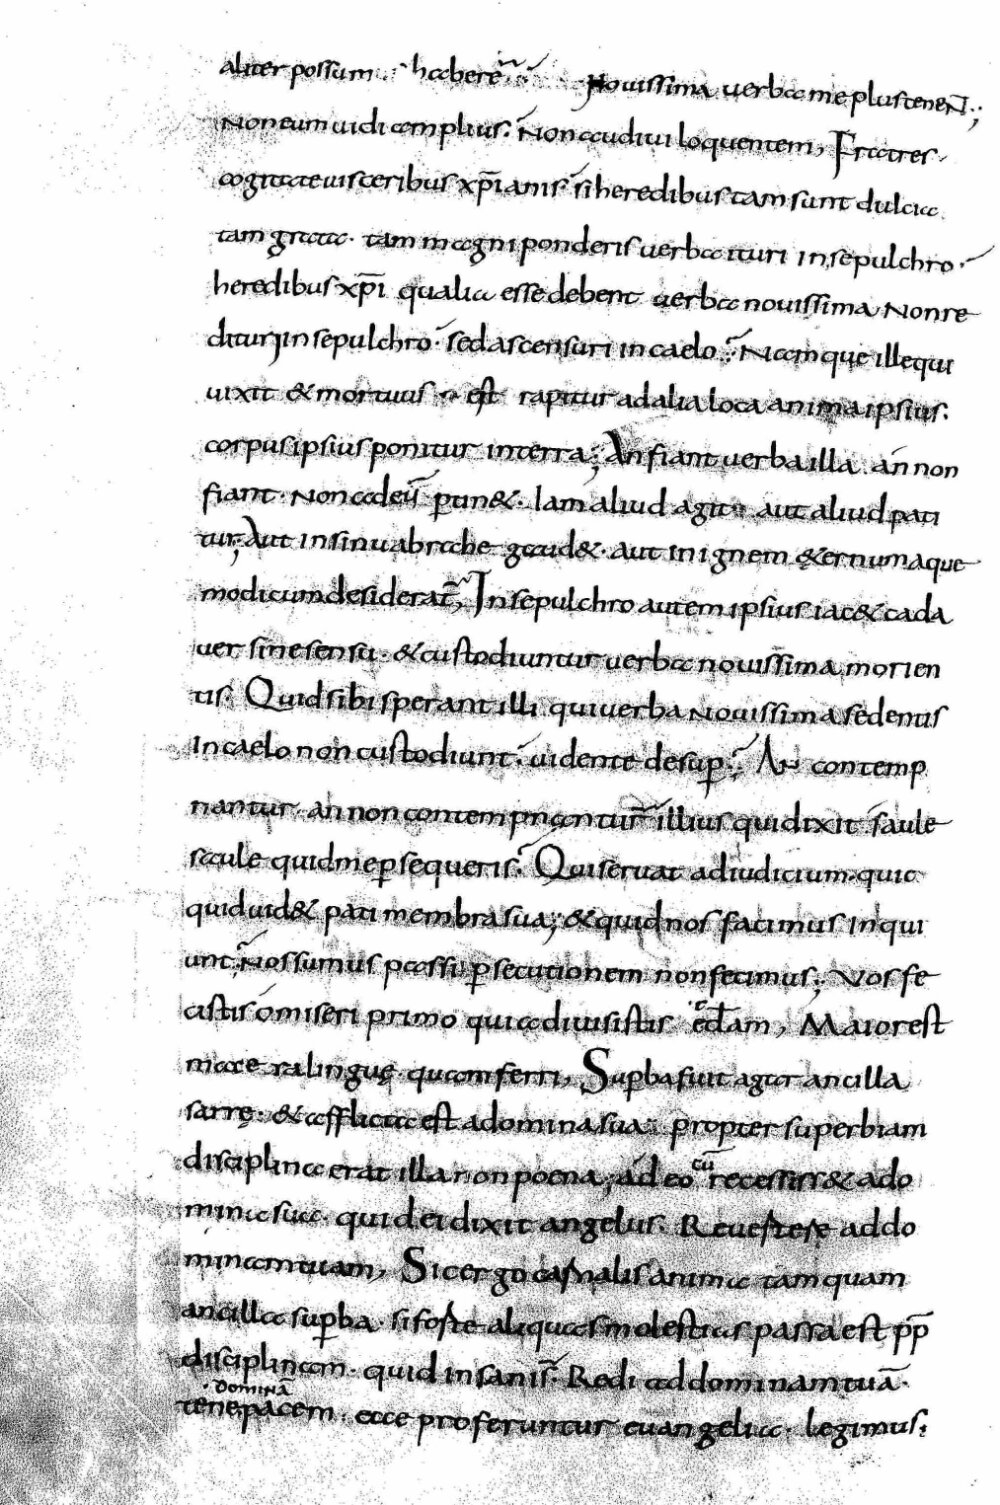 aliter possum haberē Nouissima uerba me plus tenēN;
Non eum uidi amplius. Non audiui loquentem, Fratres.
cogitate uisceribus xp̄ianis si heredibus tam sunt dulcia
tam grata. tam magni ponderis uerba ituri in sepulchro.
heredibus xp̄i qualia esse debent uerba nouissima non re
dituri in sepulchro. sed ascensuri in caelo. Namque ille qui
uixit & mortuus est rapitur ad alia loca anima ipsius.
corpus ipsius ponitur in terra; An fiant uerba illa. an non
fiant. Non ad eū ꝑtin&. Iam aliud agit aut aliud pati
tur, Aut in sinu abrahe gaud&. aut in ignem &ernum aque
modicum desiderat, In sepulchro autem ipsius iac& cada
uer sine sensu. & custodiuntur uerba nouissima morien
tis. Quid sibi sperant illi qui uerba Nouissima sedentis
in caelo non custodiunt. uidente desuꝑ. An contemp
nantur. an non contempnantur illius qui dixit saule
saule quid me ꝑsequeris. Qui seruat ad iudicium. quic
quid uid& pati membra sua; & quid nos facimus inqui
unt. Nos sumus passi ꝑsecutionem non fecimus; Vos fe
cistis o miseri primo quia diuisistis am, Maior est
macera linguę quam ferri, Suꝑba fuit agar ancilla
sarrę. & afflicta est a domina sua. propter superbiam
disciplina erat illa non poena, ad eo cū recessiss& a do
mina sua. quid ei dixit angelus. Reuertere ad do
minam tuam, Sic ergo carnalis anima tamquam
ancilla suꝑba. si forte aliquas molestias passa est pp̄
disciplinam. quid insanis. Redi ad dominam tuā.
dominā
tene pacem. ecce proferuntur euangelia. legimus.